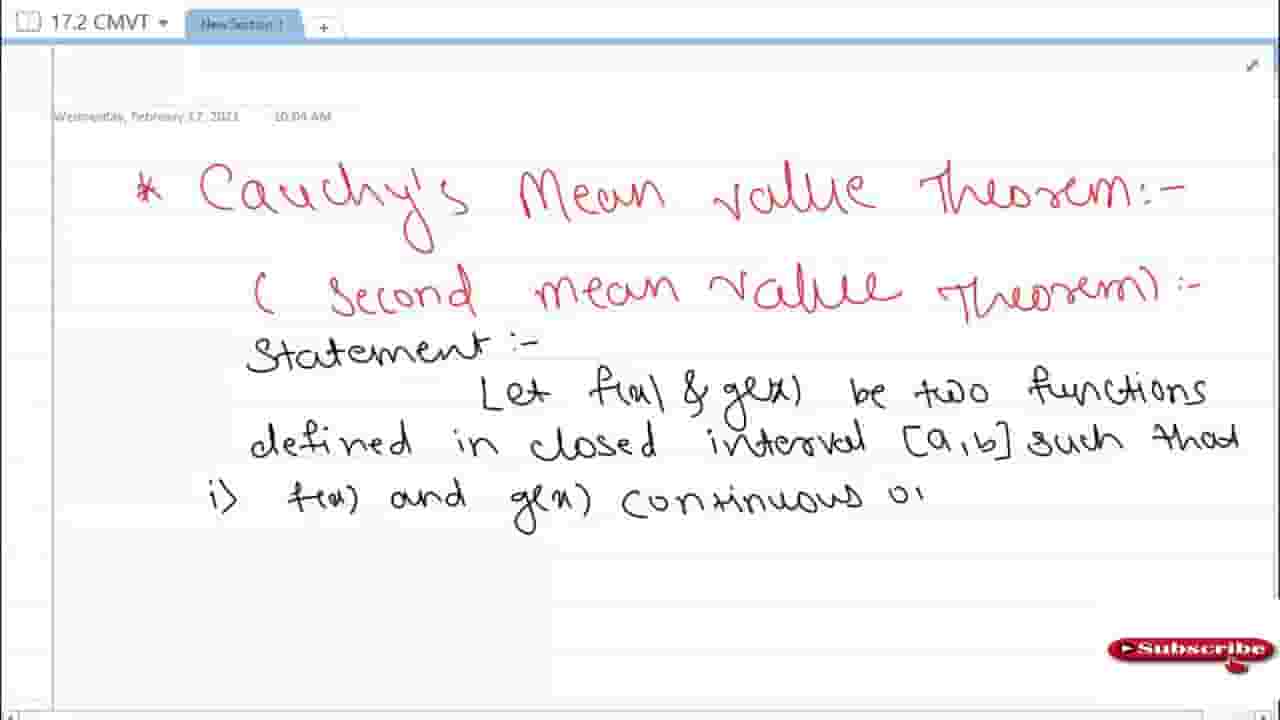 17.2 CMVT
New Section 1
Wednesday, February 17, 2021 10:04 AM
* Cauchy's Mean value Theorem:-
( Second mean value Theorem):-
Statement :-
Let f(x) & g(x) be two functions
defined in closed interval [a,b] such that
i) f(x) and g(x) continuous
Subscribe